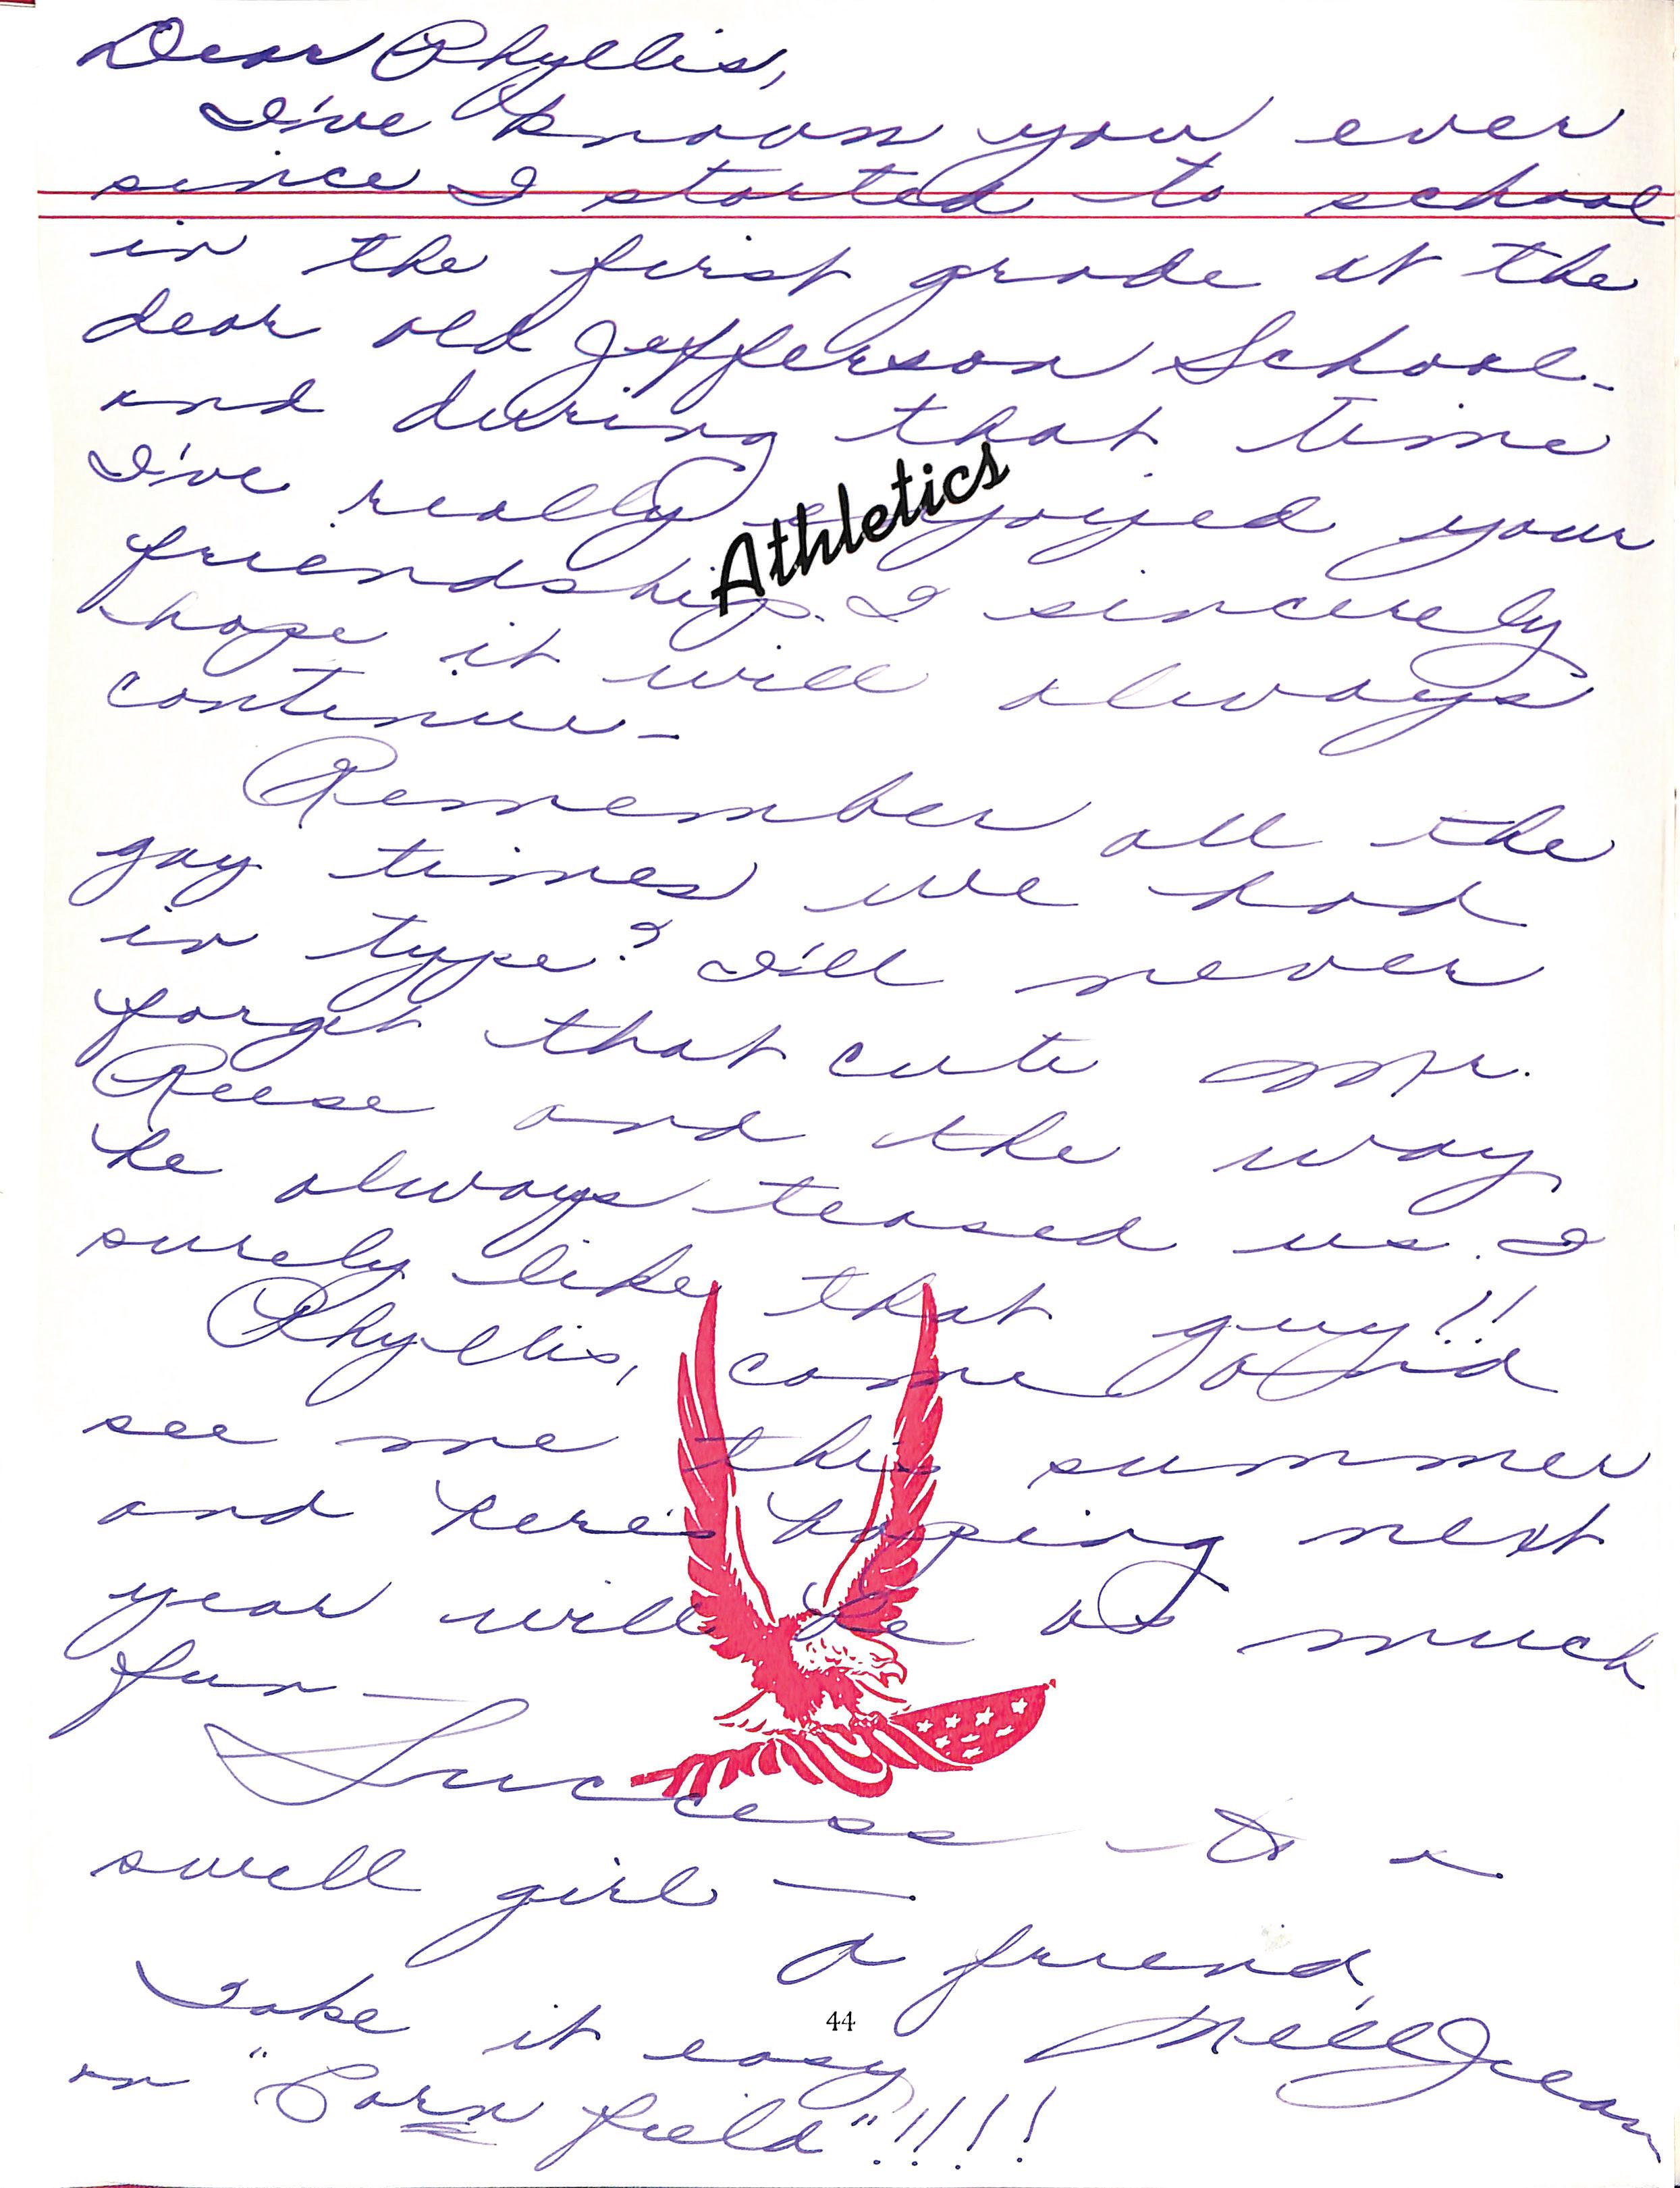 Dear Phyllis,
I've known you ever
since I started to school
in the first grade at the
dear old Jefferson School -
and during that time
I've really enjoyed your
Athletics
friendship. I sincerely
hope it will always
continue -
Remember all the
gay times we had
in type? I'll never
forget that cute Mr.
Reese and the way
he always teased us. I
surely like that guy!!
Phyllis, come and
see me this summer
and here's hoping next
year will be as much
fun —
Success to a
swell girl —
a friend,
Take it easy
44
on "Corn field"!!!!